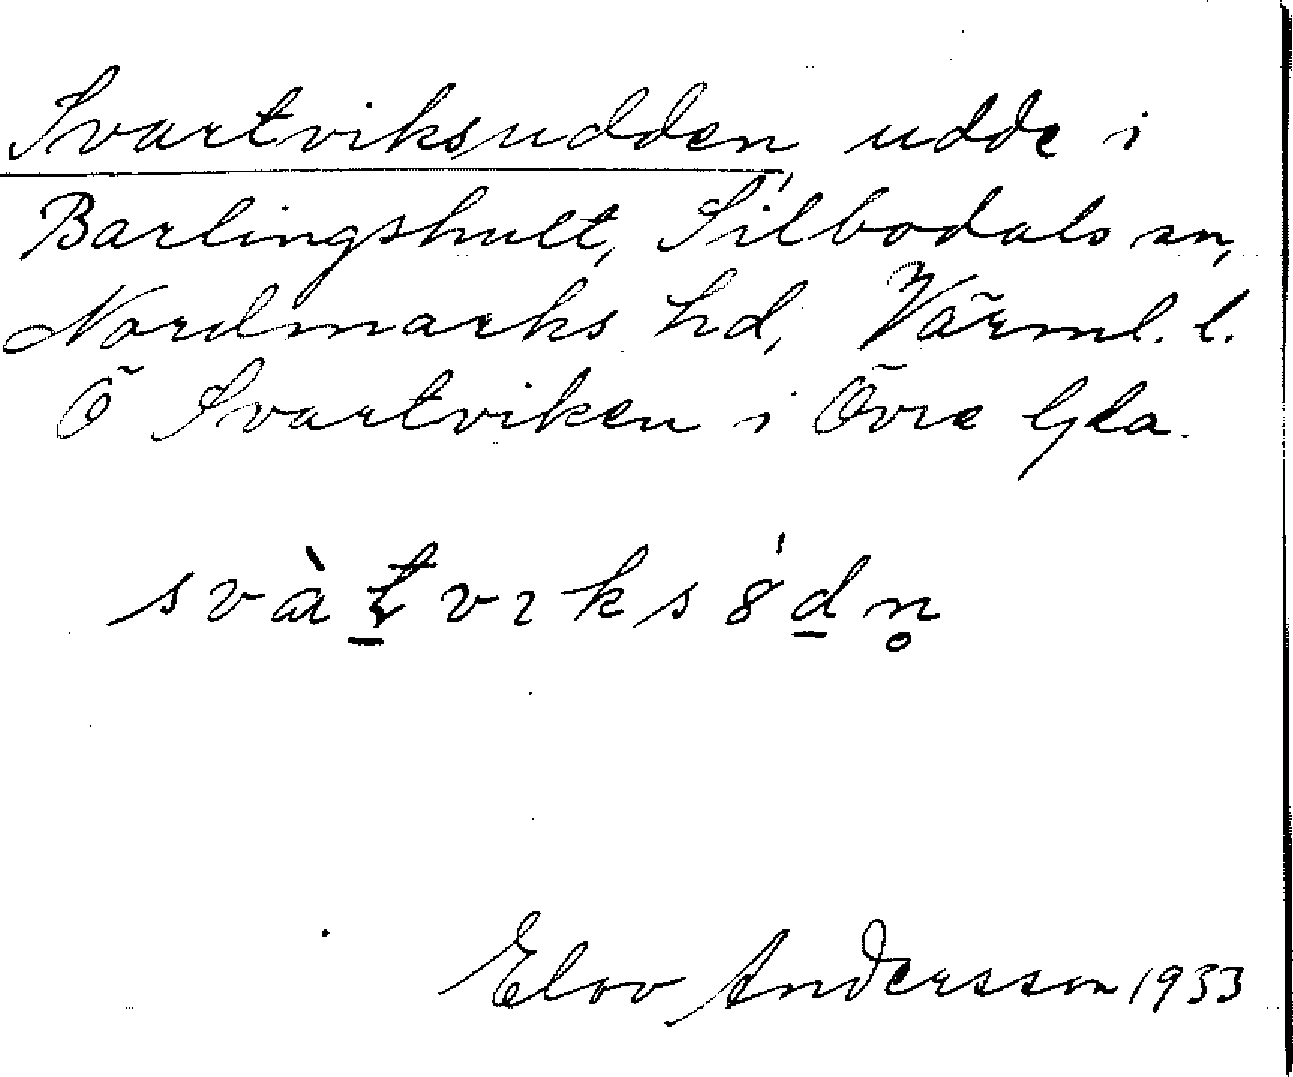 Svartviksudden, udde i
Barlingshult, Silbodals sn,
Nordmarks hd, Värml. l.
Ö Svartviken i Övre Gla.
svàṯvɪks8́ḏn̥
Elov Andersson 1933